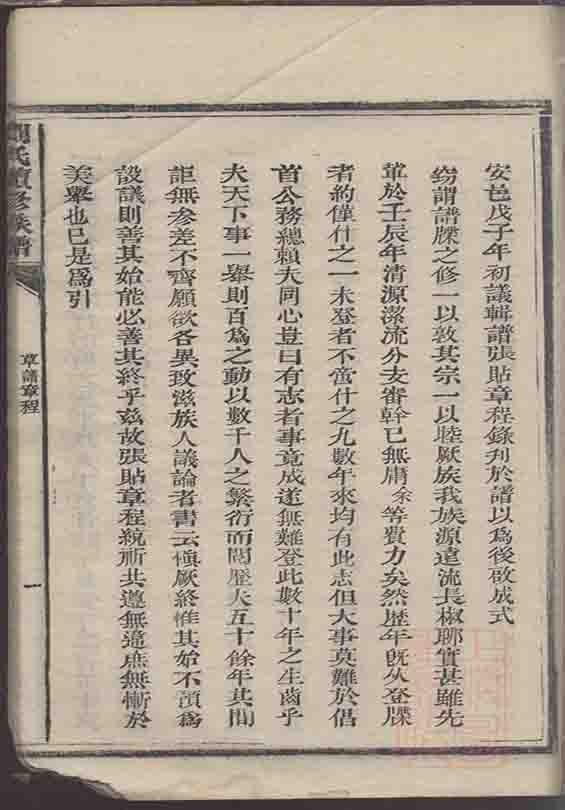 安邑戊子年初議輯譜張貼章程錄刋於譜以為後啟成式
竊謂譜牒之修一以敦其宗一以睦厥族我族源遠流長椒聊實甚雖先
軰於壬辰年清源潔流分支審幹已無庸余等費力矣然歷年旣久登牒
者約僅什之一未登者不啻什之九數年來均有此志但大事莫難於倡
首公務總賴夫同心豈曰有志者事竟成遂無難登此數十年之生齒乎
夫天下事一舉則百為之動以數千人之繁衍而閱歷夫五十餘年其間
詎無參差不齊願欲各異致滋族人議論者書云愼厥終惟其始不預為
設議則善其始能必善其終乎茲故張貼章程統祈共遵無違庶無慚於
美舉也已是為引
氏續修族譜
草譜章程
一